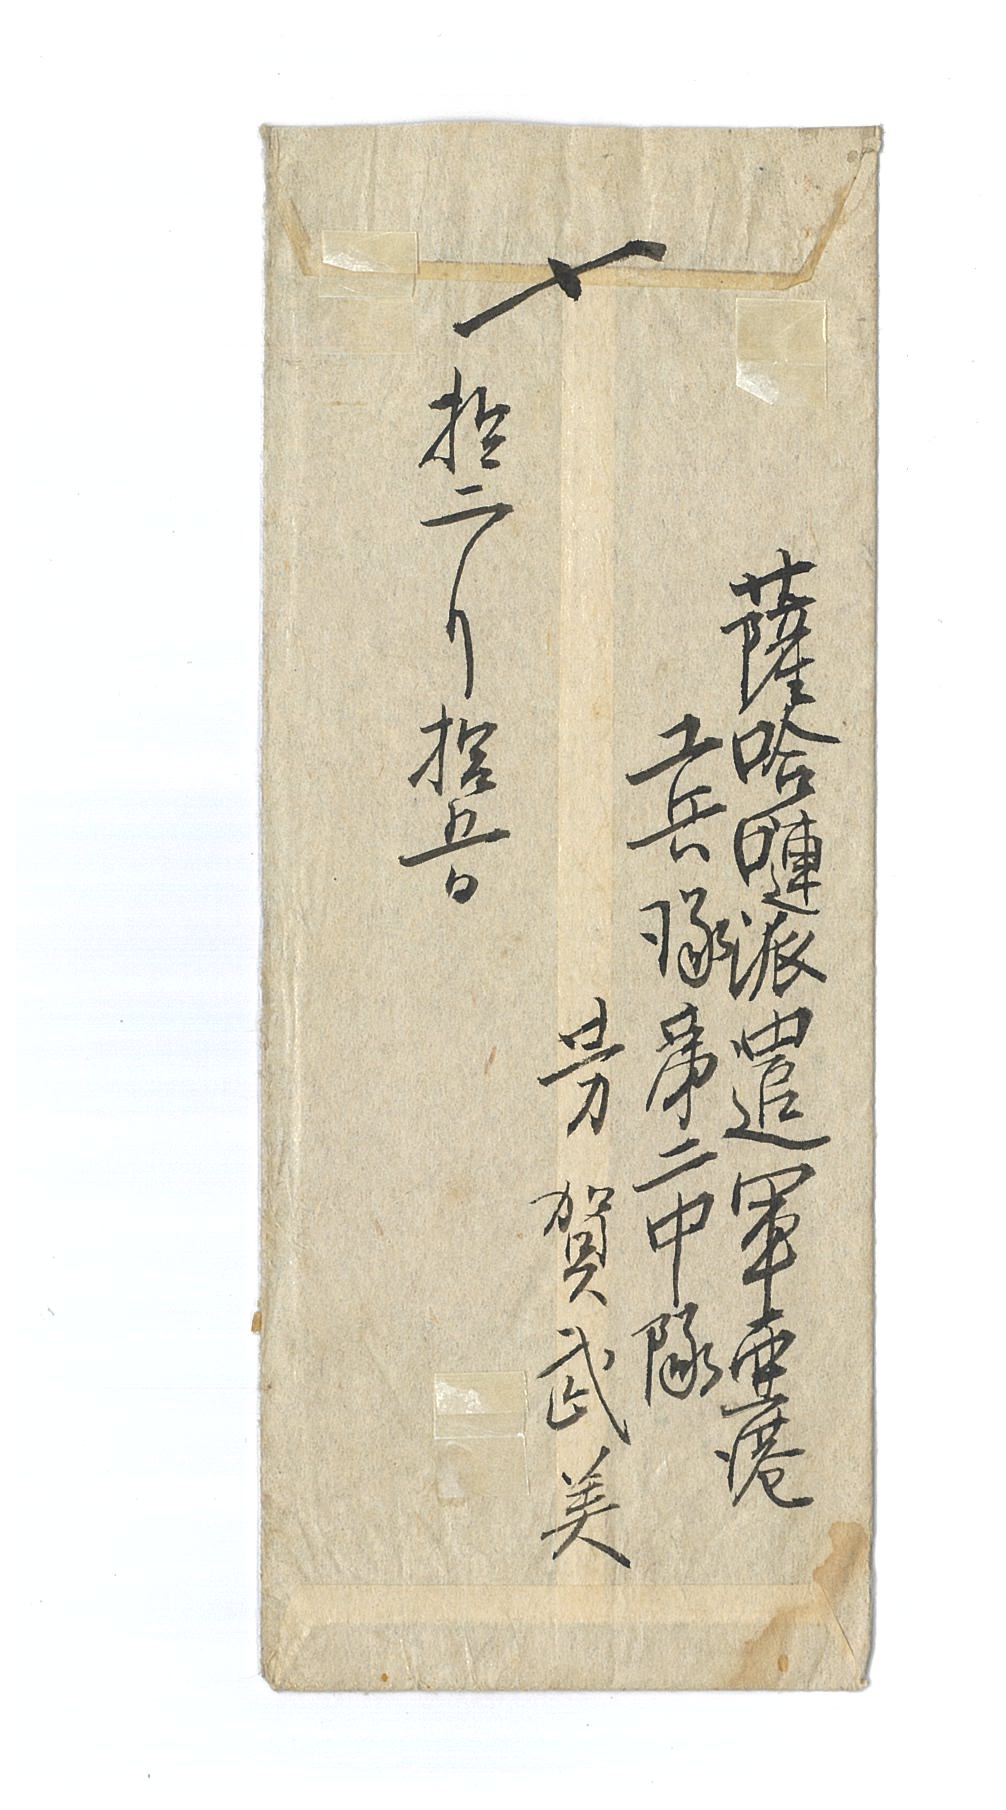 薩哈嗹派遣軍亜港
工兵隊第二中隊
芳賀武美
拾二月拾五日